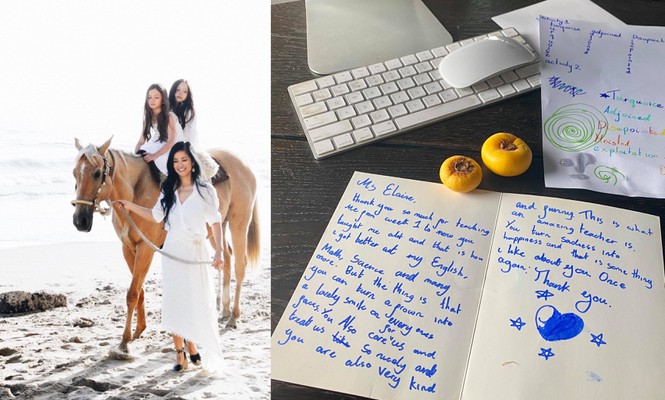 Ms Elaine,
thank you so much for teaching
me past week I know you
taught me alot and that is how
i got better at my English,
Math, Science and many
more. But the thing is that
you can turn a frown into
a lovely smile on everyones
faces. You Also care for us and
treat us so nicely and
you are also very kind
and funny This is what
an amazing teacher is.
You turn sadness into
happiness and that is something
i like about you Once
again. Thank you.
activity 1
adjoined
Dispatch
activity 2
Turquoise
Adjoined